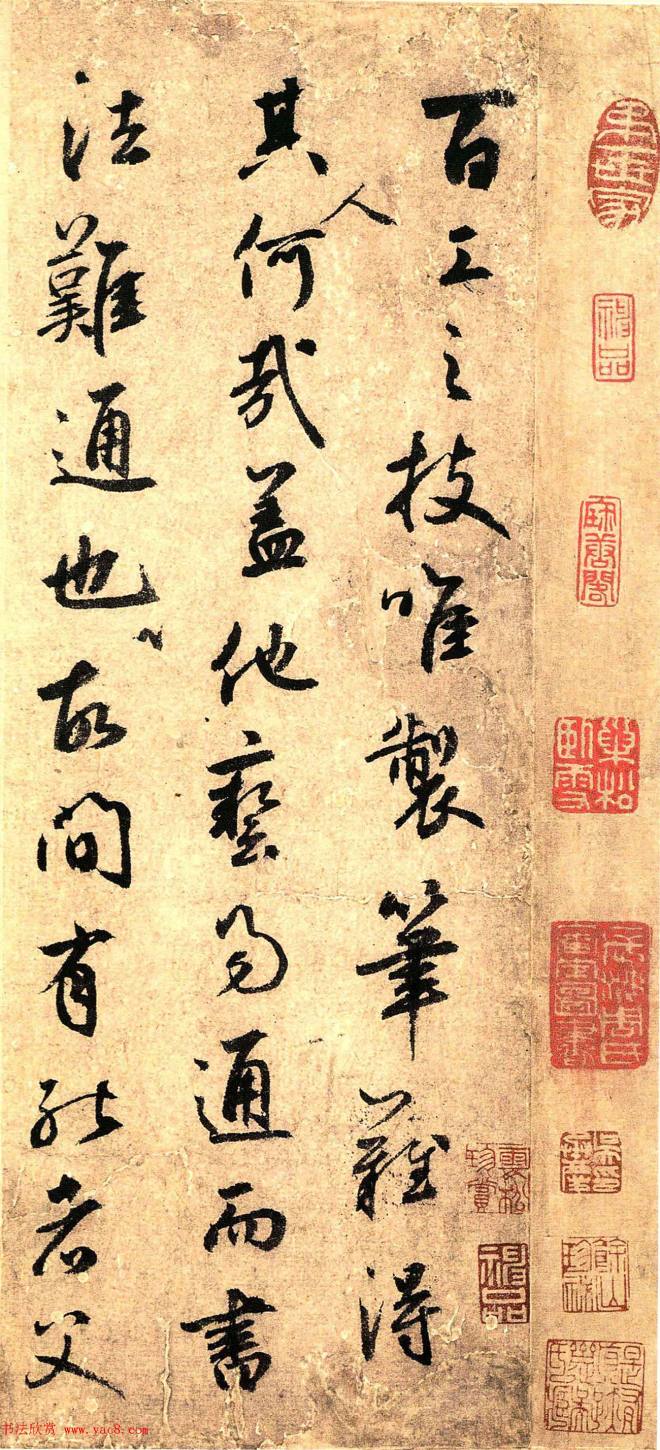 百工之技唯製筆難得
其人何哉盖他藝易通而書
法難通也故間有能者父
神品
神品
书法欣赏 www.yac8.com